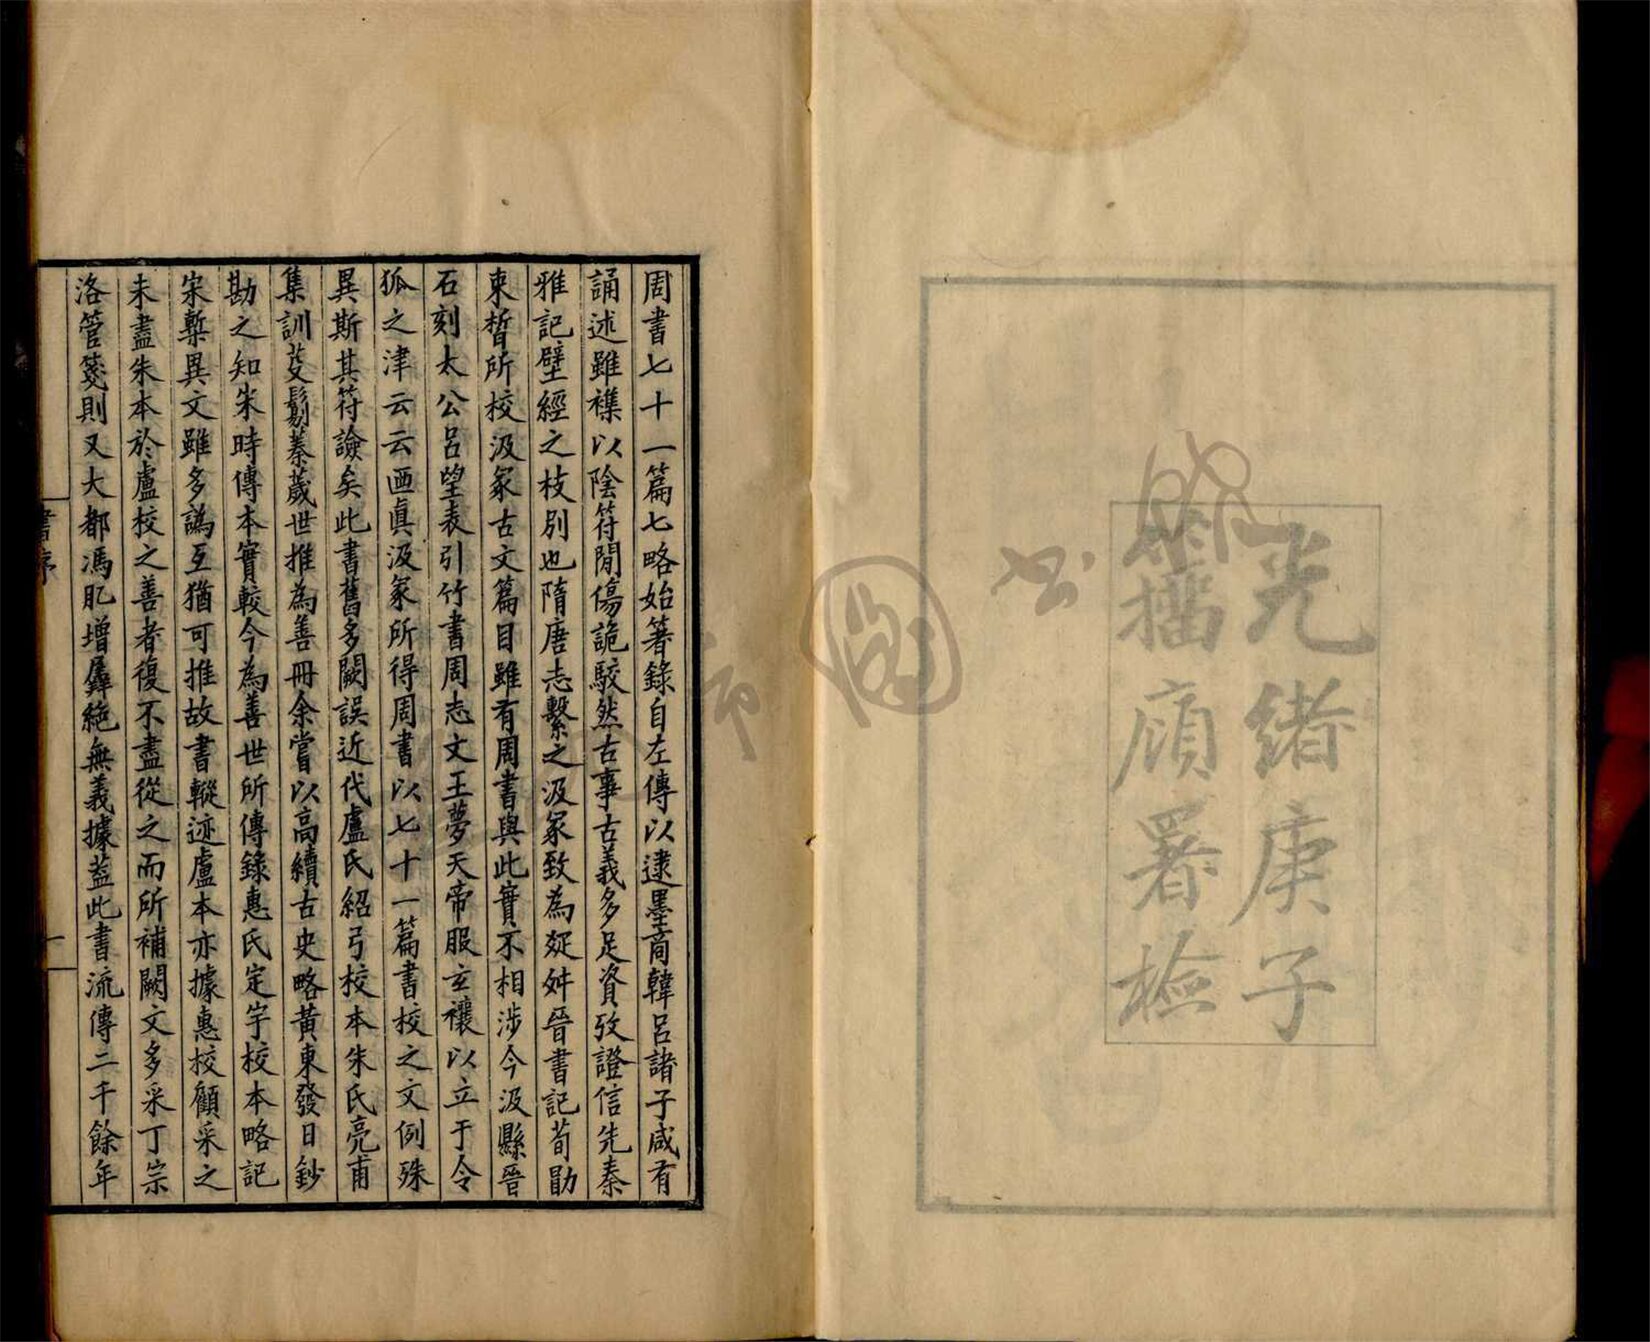 光緒庚子
籀廎署檢
周書七十一篇七略始箸錄自左傳以逮墨商韓呂諸子咸有
誦述雖襍以陰符閒傷詭駮然古事古義多足資攷證信先秦
雅記壁經之枝別也隋唐志繫之汲冢致為疑舛晉書記荀勖
束晳所校汲冢古文篇目雖有周書與此實不相涉今汲縣晉
石刻太公呂望表引竹書周志文王夢天帝服玄禳以立于令
狐之津云云迺真汲冢所得周書以七十一篇書校之文例殊
異斯其符譣矣此書舊多闕誤近代盧氏紹弓校本朱氏亮甫
集訓芟鬄蓁薉世推為善冊余嘗以高續古史略黃東發日鈔
勘之知宋時傳本實較今為善世所傳錄惠氏定宇校本略記
宋槧異文雖多譌互猶可推故書轍迹盧本亦據惠校顧采之
未盡朱本於盧校之善者復不盡從之而所補闕文多采丁宗
洛管箋則又大都馮肊增羼絕無義據葢此書流傳二千餘年
書序
一